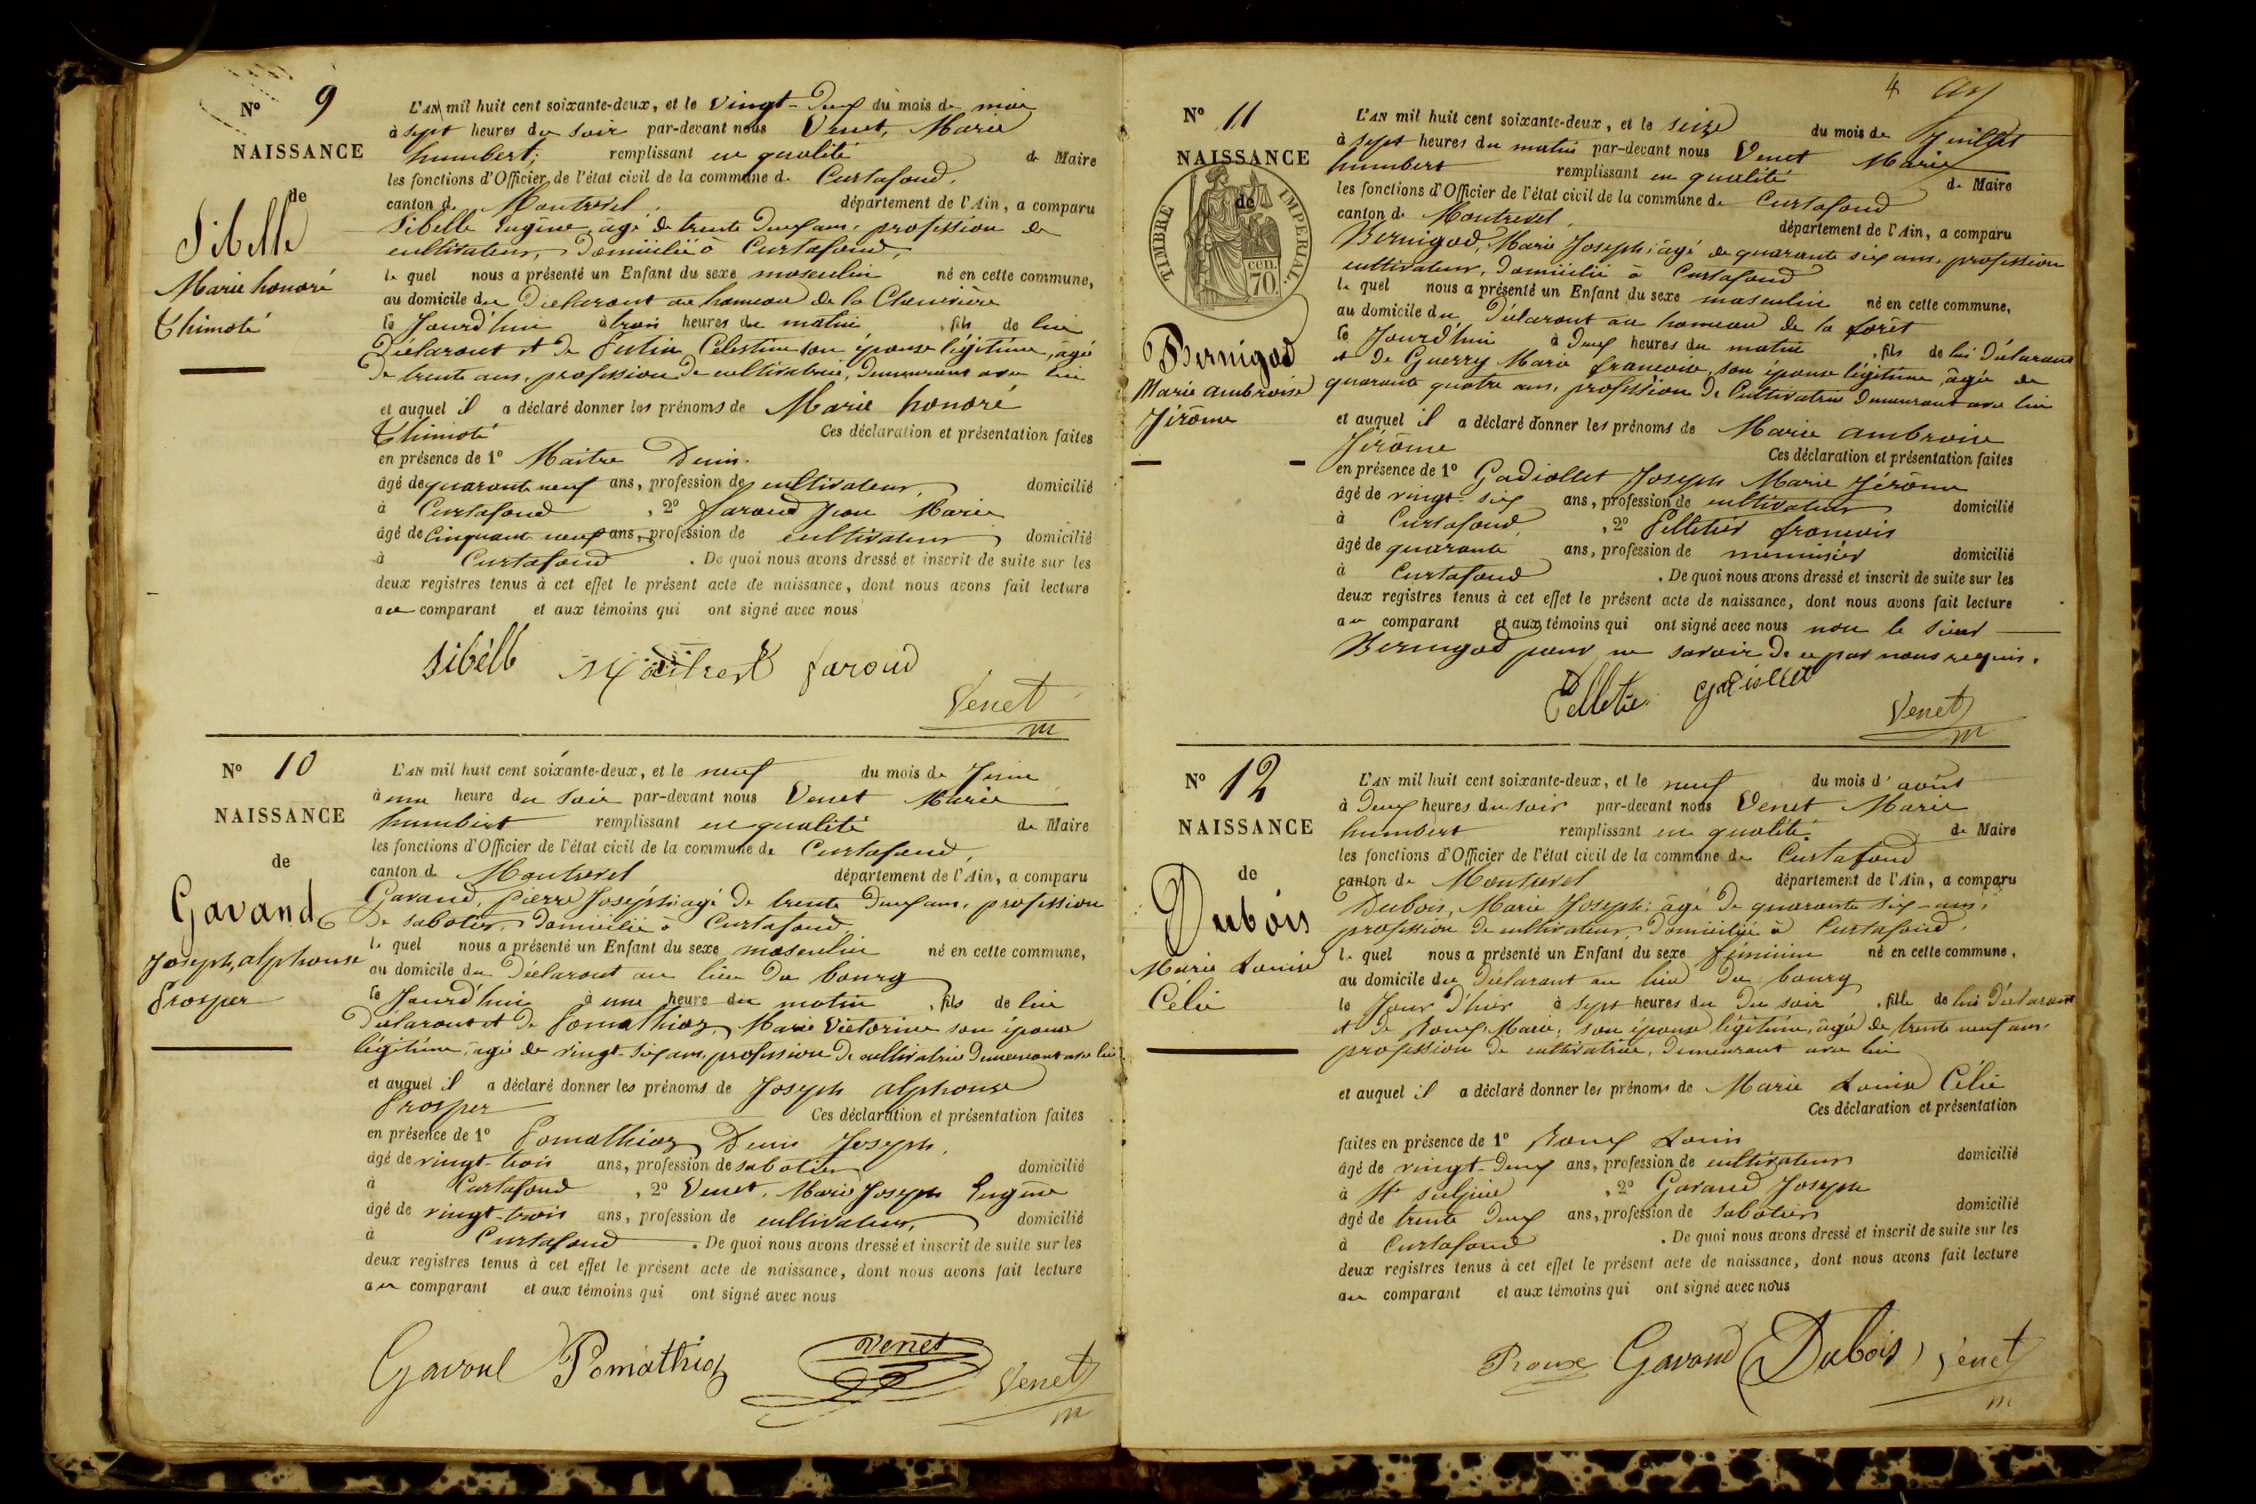 N° 9
NAISSANCE
de
Sibelle
Marie honoré
Thimoté
L'AN mil huit cent soixante-deux, et le vingt-deux du mois de mai
à sept heures du soir par-devant nous Venet, Marie
humbert, remplissant en qualité de Maire
les fonctions d'Officier de l'état civil de la commune de Curtafond,
canton de Montrevel, département de l'Ain, a comparu
Sibelle Eugène, âgé de trente deux ans, profession de
cultivateur, domicilié à Curtafond,
le quel nous a présenté un Enfant du sexe masculin né en cette commune,
au domicile du Déclarant au hameau de la
le Jourd'hui à trois heures du matin, fils de lui
Déclarant et de Putin Célestine son épouse légitime, âgée
de trente ans, profession de cultivatrice, demeurant avec lui
et auquel il a déclaré donner les prénoms de Marie honoré
Thimoté Ces déclaration et présentation faites
en présence de 1° Maitre Denis
âgé de quarante neuf ans, profession de cultivateur, domicilié
à Curtafond, 2° Faroud Jean Marie
âgé de cinquante neuf ans, profession de cultivateur, domicilié
à Curtafond. De quoi nous avons dressé et inscrit de suite sur les
deux registres tenus à cet effet le présent acte de naissance, dont nous avons fait lecture
au comparant et aux témoins qui ont signé avec nous
Sibelle faroud
Venet
m
N° 10
NAISSANCE
de
Gavand
Joseph, alphonse
Prosper
L'AN mil huit cent soixante-deux, et le neuf du mois de Juin
à une heure du soir par-devant nous Venet Marie
humbert remplissant en qualité de Maire
les fonctions d'Officier de l'état civil de la commune de Curtafond,
canton de Montrevel département de l'Ain, a comparu
Gavand, Pierre Joseph, âgé de trente deux ans, profession
de sabotier, domicilié à Curtafond,
le quel nous a présenté un Enfant du sexe masculin né en cette commune,
au domicile du Déclarant au lieu du bourg
le Jourd'hui à une heure du matin, fils de lui
Déclarant et de Pomathioz, Marie Victorine son épouse
légitime, âgée de vingt-six ans, profession de cultivatrice demeurant avec lui
et auquel il a déclaré donner les prénoms de Joseph alphonse
Prosper Ces déclaration et présentation faites
en présence de 1° Pomathioz Denis Joseph,
âgé de vingt-trois ans, profession de sabotier domicilié
à Curtafond, 2° Venet, Marie Joseph Eugène
âgé de vingt-trois ans, profession de cultivateur, domicilié
à Curtafond. De quoi nous avons dressé et inscrit de suite sur les
deux registres tenus à cet effet le présent acte de naissance, dont nous avons fait lecture
au comparant et aux témoins qui ont signé avec nous
Gavand Pomathioz Venet Venet
m
4
N° 11
NAISSANCE
de
TIMBRE IMPERIAL
70 cen.
Bernigod
Marie ambroise
Jérôme
L'AN mil huit cent soixante-deux, et le seize du mois de Juillet
à sept heures du matin par-devant nous Venet Marie
humbert remplissant en qualité de Maire
les fonctions d'Officier de l'état civil de la commune de Curtafond
canton de Montrevel, département de l'Ain, a comparu
Bernigod, Marie Joseph, âgé de quarante six ans, profession
cultivateur, domicilié à Curtafond
le quel nous a présenté un Enfant du sexe masculin né en cette commune,
au domicile du Déclarant au hameau de la forêt
le Jourd'hui à deux heures du matin, fils de lui Déclarant
et de Guerry Marie françoise, son épouse légitime, âgée de
quarante quatre ans, profession de Cultivatrice demeurant avec lui
et auquel il a déclaré donner les prénoms de Marie ambroise
Jérôme Ces déclaration et présentation faites
en présence de 1° Gadiollet Joseph Marie Jérôme
âgé de vingt-six ans, profession de cultivateur domicilié
à Curtafond, 2° Pelletier françois
âgé de quarante ans, profession de menuisier domicilié
à Curtafond. De quoi nous avons dressé et inscrit de suite sur les
deux registres tenus à cet effet le présent acte de naissance, dont nous avons fait lecture
au comparant et aux témoins qui ont signé avec nous non le sieur
Bernigod pour ne savoir de ce par nous requis.
Pelletier gadiollet
Venet
m
N° 12
NAISSANCE
de
Dubois
Marie Louise
Célie
L'AN mil huit cent soixante-deux, et le neuf du mois d'août
à deux heures du soir par-devant nous Venet Marie
humbert remplissant en qualité de Maire
les fonctions d'Officier de l'état civil de la commune de Curtafond
canton de Montrevel département de l'Ain, a comparu
Dubois, Marie Joseph, âgé de quarante six-ans,
profession de cultivateur, domicilié à Curtafond,
le quel nous a présenté un Enfant du sexe féminin né en cette commune,
au domicile du Déclarant au lieu du bourg
le Jour d'hier à sept heures du Du soir, fille de lui Déclarant
et de Roux, Marie, son épouse légitime, âgée de trente neuf ans
profession de cultivatrice, demeurant avec lui
et auquel il a déclaré donner les prénoms de Marie Louise Célie
Ces déclaration et présentation
faites en présence de 1° Roux Louis
âgé de vingt-deux ans, profession de cultivateur domicilié
à St Sulpice, 2° Gavand Joseph
âgé de trente deux ans, profession de Sabotier domicilié
à Curtafond. De quoi nous avons dressé et inscrit de suite sur les
deux registres tenus à cet effet le présent acte de naissance, dont nous avons fait lecture
au comparant et aux témoins qui ont signé avec nous
Roux Gavand Dubois Venet
m